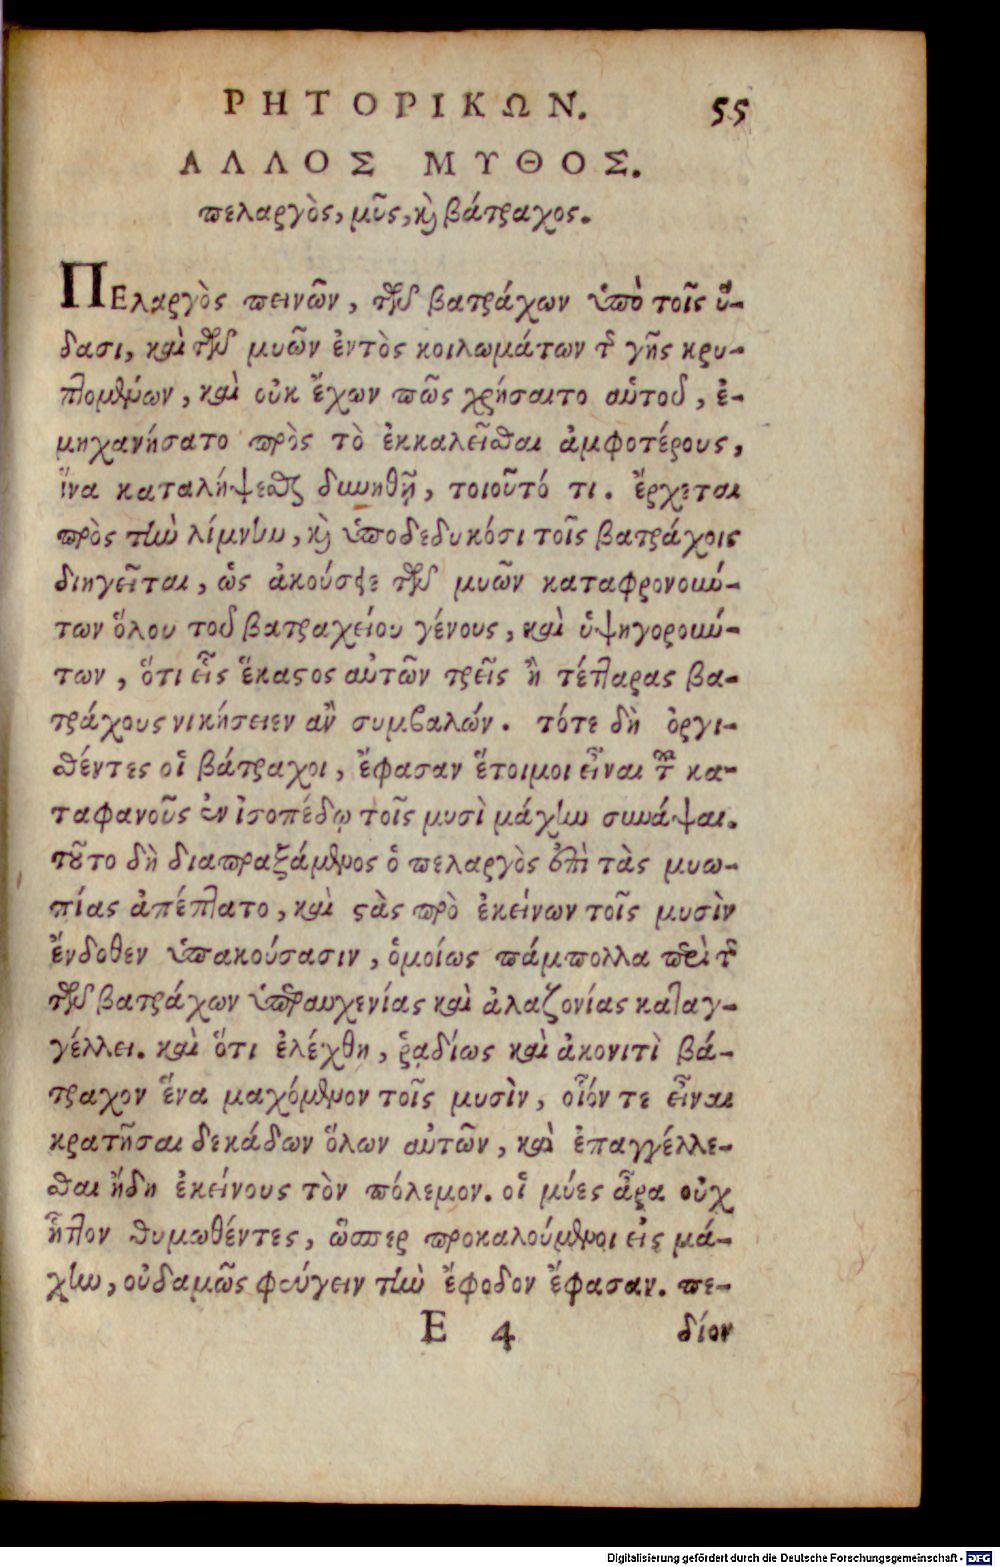 ΡΗΤΟΡΙΚΩΝ. 55
ΑΛΛΟΣ ΜΥΘΟΣ.
πελαργὸς, μῦς, καὶ βάτραχος.
ΠΕλαργὸς πεινῶν, τῶν βατράχων ὑπὸ τοῖς ὕ-
δασι, καὶ τῶν μυῶν ἐντὸς κοιλωμάτων τῆς γῆς κρυ-
πτομένων, καὶ οὐκ ἔχων πῶς χρήσαιτο αὐτοῖς, ἐ-
μηχανήσατο πρὸς τὸ ἐκκαλεῖσθαι ἀμφοτέρους,
ἵνα καταλήψεσθαι δυνηθῇ, τοιοῦτό τι. ἔρχεται
πρὸς τὴν λίμνην, καὶ ὑποδεδυκόσι τοῖς βατράχοις
διηγεῖται, ὡς ἀκούσειε τῶν μυῶν καταφρονούν-
των ὅλου τοῦ βατραχείου γένους, καὶ ὑψηγορούν-
των, ὅτι εἷς ἕκαστος αὐτῶν τρεῖς ἢ τέτταρας βα-
τράχους νικήσειεν ἂν συμβαλών. τότε δὴ ὀργι-
σθέντες οἱ βάτραχοι, ἔφασαν ἕτοιμοι εἶναι τοῦ κα-
ταφανοῦς ἐν ἰσοπέδῳ τοῖς μυσὶ μάχην συνάψαι.
τοῦτο δὴ διαπραξάμενος ὁ πελαργὸς ἐπὶ τὰς μυω-
πίας ἀπέπτατο, καὶ στὰς πρὸ ἐκείνων τοῖς μυσὶν
ἔνδοθεν ὑπακούσασιν, ὁμοίως πάμπολλα περὶ τῆς
τῶν βατράχων ὑπεραυχενίας καὶ ἀλαζονίας καταγ-
γέλλει. καὶ ὅτι ἐλέχθη, ῥᾳδίως καὶ ἀκονιτὶ βά-
τραχον ἕνα μαχόμενον τοῖς μυσὶν, οἷόν τε εἶναι
κρατῆσαι δεκάδων ὅλων αὐτῶν, καὶ ἐπαγγέλλε-
σθαι ἤδη ἐκείνους τὸν πόλεμον. οἱ μύες ἆρα οὐχ
ἧττον θυμωθέντες, ὥσπερ προκαλούμενοι εἰς μά-
χην, οὐδαμῶς φεύγειν τὴν ἔφοδον ἔφασαν. πε-
E 4 δίον
Digitalisierung gefördert durch die Deutsche Forschungsgemeinschaft - DFG